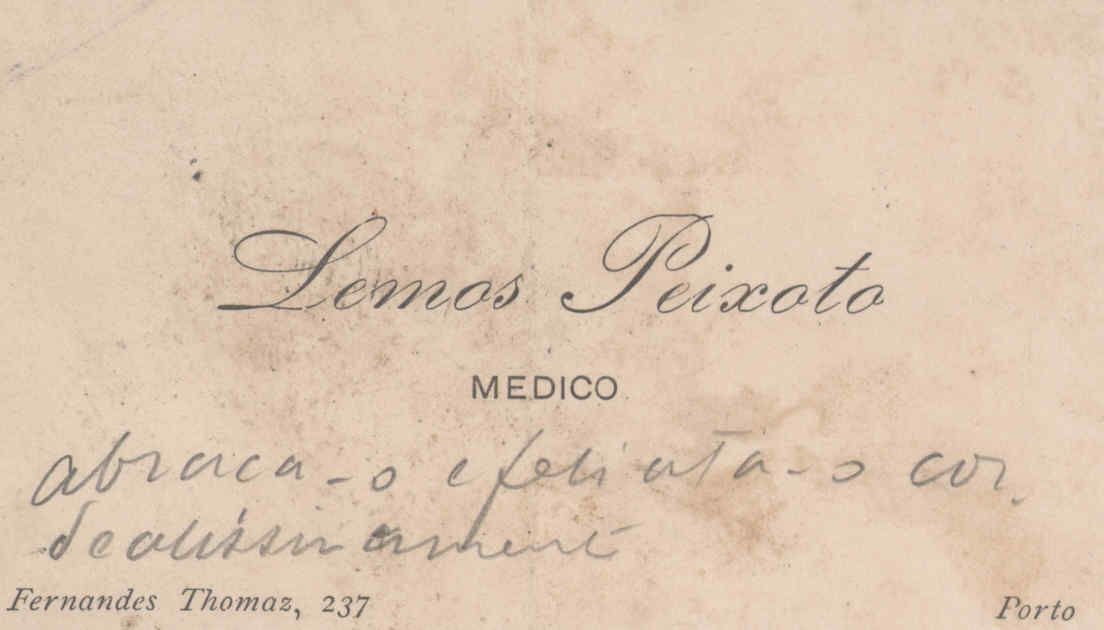 Lemos Peixoto
MEDICO
abraca-o e felicita-o cor.
dealissimamente
Fernandes Thomaz, 237
Porto